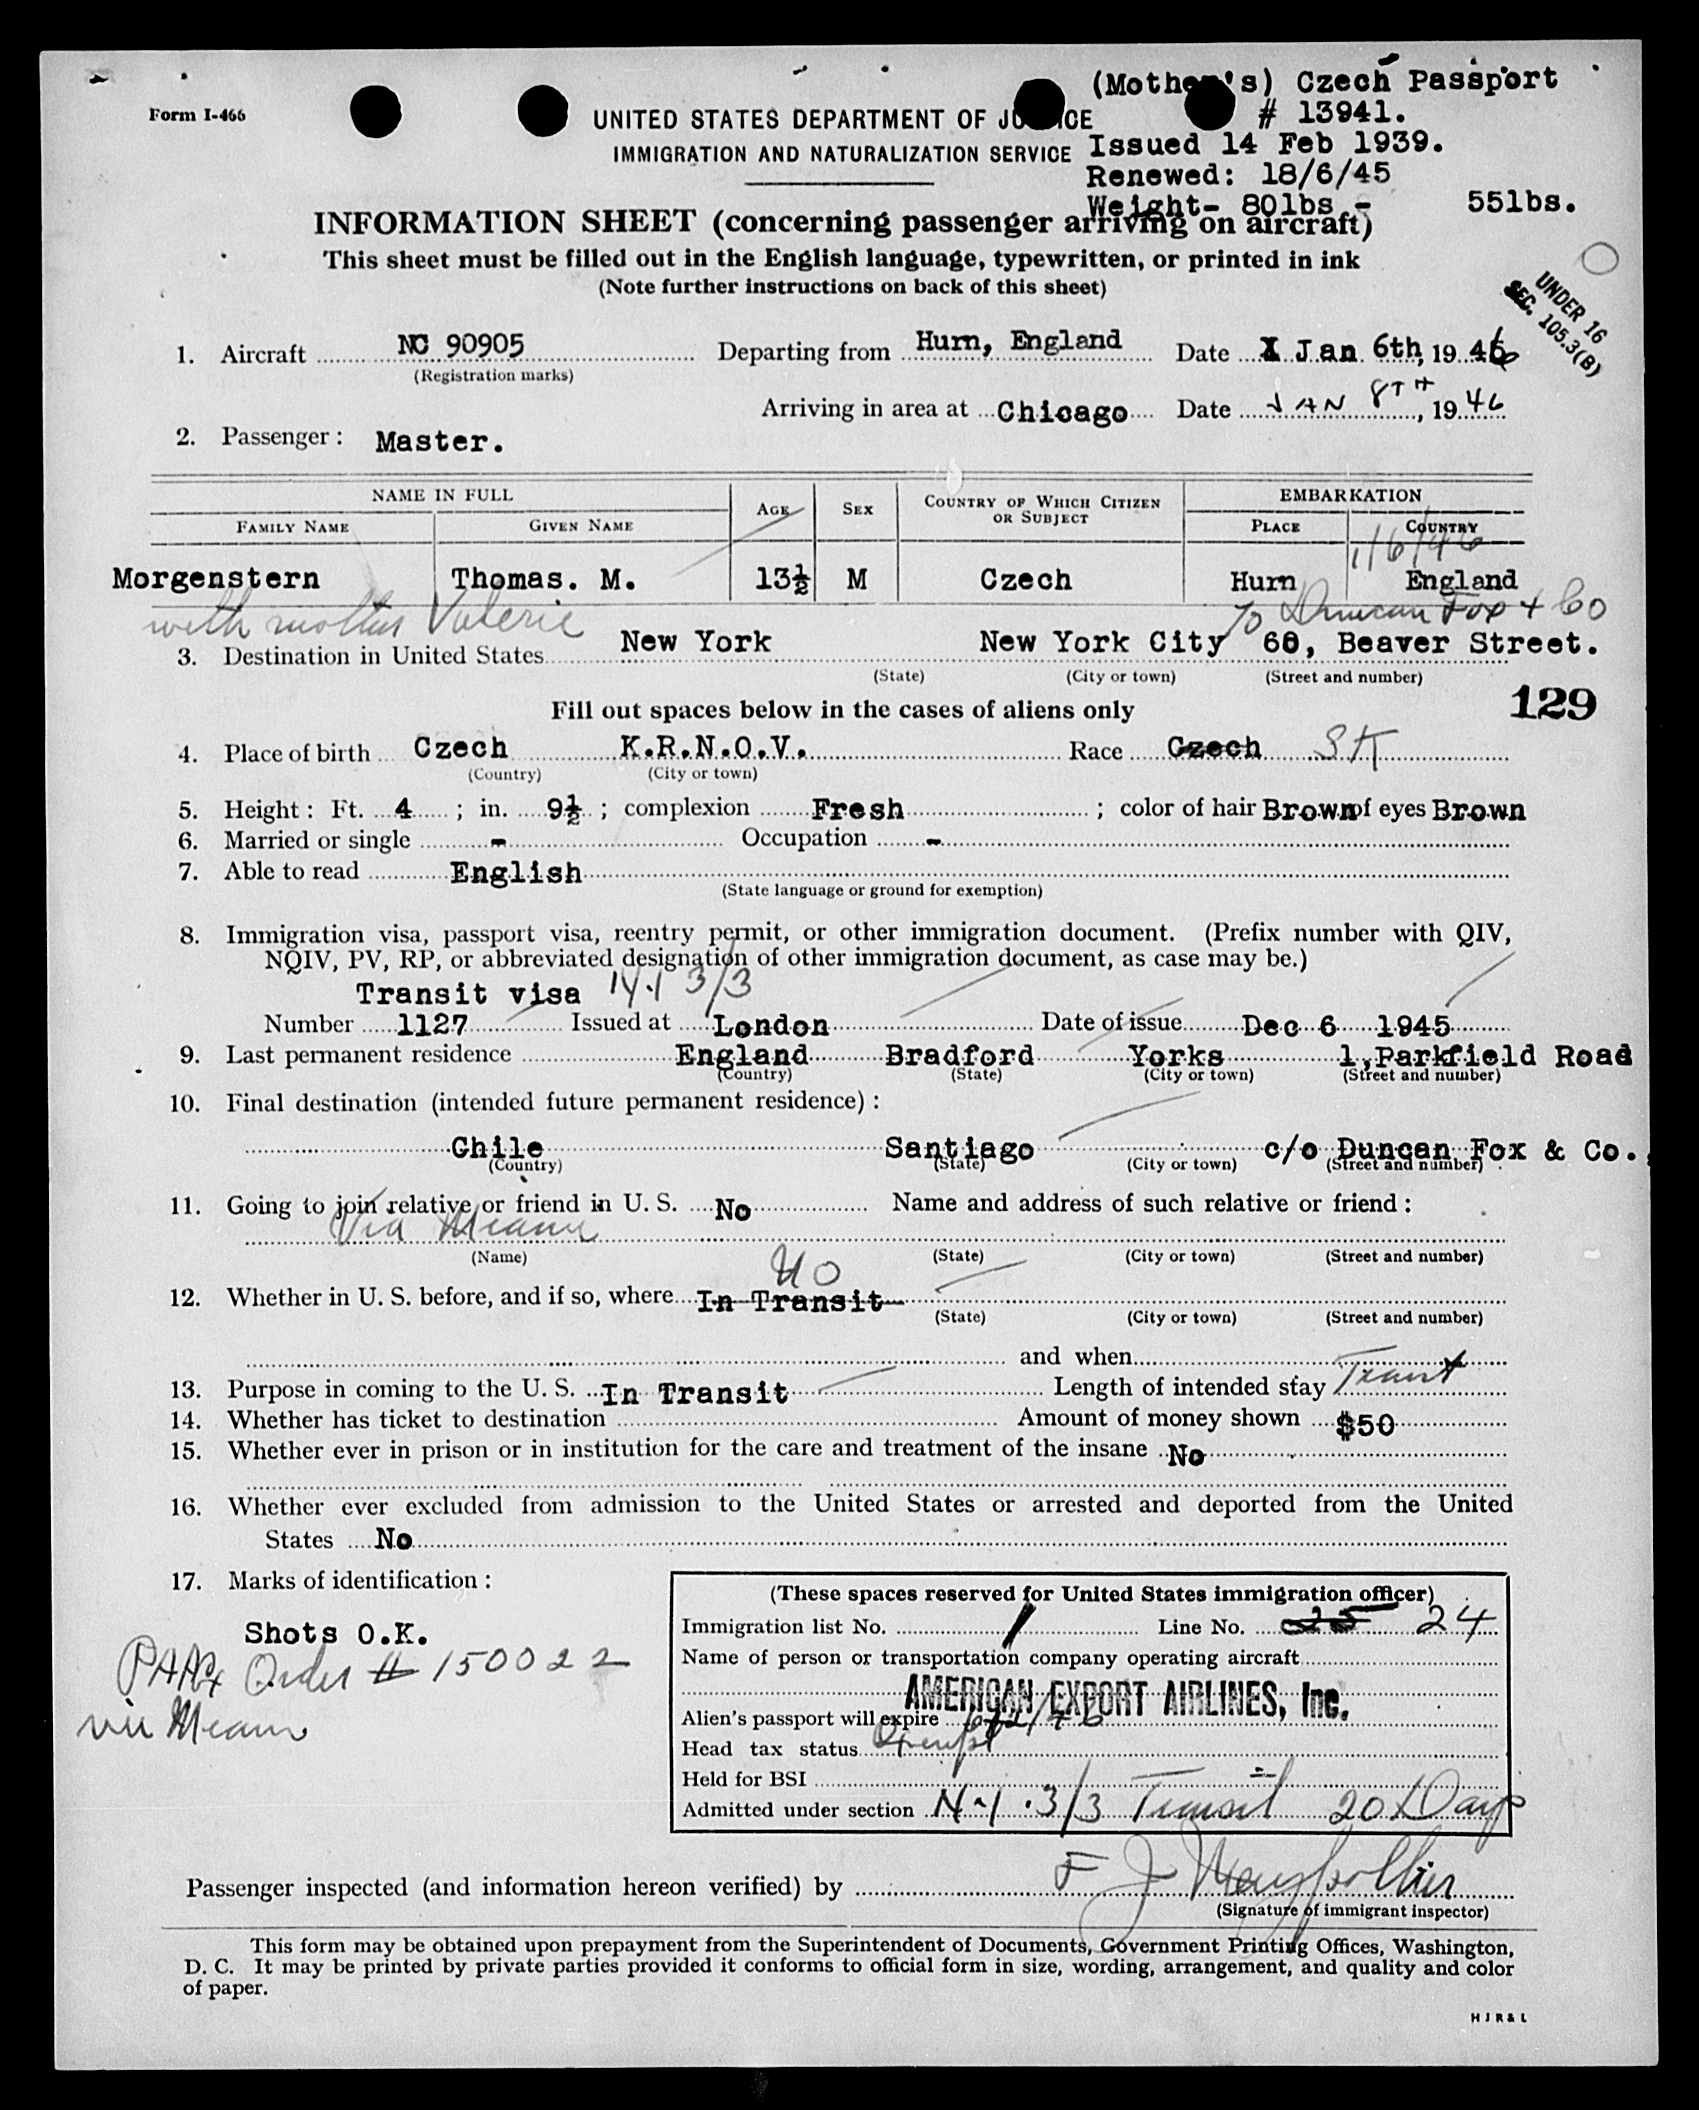 (Mother's) Czech Passport
Form I-466
# 13941.
UNITED STATES DEPARTMENT OF JUSTICE
Issued 14 Feb 1939.
IMMIGRATION AND NATURALIZATION SERVICE
Renewed: 18/6/45
Weight- 80lbs - 55lbs.
INFORMATION SHEET (concerning passenger arriving on aircraft)
This sheet must be filled out in the English language, typewritten, or printed in ink
(Note further instructions on back of this sheet)
UNDER 16
SEC. 105.3(B)
1. Aircraft NC 90905 Departing from Hurn, England Date Jan 6th, 1946
(Registration marks)
Arriving in area at Chicago Date JAN 8TH, 1946
2. Passenger: Master.
NAME IN FULL AGE SEX COUNTRY OF WHICH CITIZEN OR SUBJECT EMBARKATION
FAMILY NAME GIVEN NAME PLACE COUNTRY
1/6/46
Morgenstern Thomas. M. 13½ M Czech Hurn England
with mother Valerie To Duncan Fox & Co
3. Destination in United States New York New York City 60, Beaver Street.
(State) (City or town) (Street and number)
129
Fill out spaces below in the cases of aliens only
4. Place of birth Czech K.R.N.O.V. Race Czech SK
(Country) (City or town)
5. Height: Ft. 4; in. 9½; complexion Fresh; color of hair Brown of eyes Brown
6. Married or single - Occupation -
7. Able to read English
(State language or ground for exemption)
8. Immigration visa, passport visa, reentry permit, or other immigration document. (Prefix number with QIV,
NQIV, PV, RP, or abbreviated designation of other immigration document, as case may be.)
Transit visa 3/3
Number 1127 Issued at London Date of issue Dec 6 1945
9. Last permanent residence England Bradford Yorks 1,Parkfield Road
(Country) (State) (City or town) (Street and number)
10. Final destination (intended future permanent residence):
Chile Santiago c/o Duncan Fox & Co.,
(Country) (State) (City or town) (Street and number)
11. Going to join relative or friend in U. S. No Name and address of such relative or friend:
Via Miami
(Name) (State) (City or town) (Street and number)
No
12. Whether in U. S. before, and if so, where In Transit
(State) (City or town) (Street and number)
and when
13. Purpose in coming to the U. S. In Transit Length of intended stay Transit
14. Whether has ticket to destination Amount of money shown $50
15. Whether ever in prison or in institution for the care and treatment of the insane No
16. Whether ever excluded from admission to the United States or arrested and deported from the United
States No
17. Marks of identification:
Shots O.K.
Order # 150022
via Miami
(These spaces reserved for United States immigration officer)
Immigration list No. 1 Line No. 25 24
Name of person or transportation company operating aircraft
AMERICAN EXPORT AIRLINES, Inc.
Alien's passport will expire
Head tax status Exempt
Held for BSI -
Admitted under section 3/3 Transit 20 Days
Passenger inspected (and information hereon verified) by F J
(Signature of immigrant inspector)
This form may be obtained upon prepayment from the Superintendent of Documents, Government Printing Offices, Washington,
D. C. It may be printed by private parties provided it conforms to official form in size, wording, arrangement, and quality and color
of paper.
H J R & L